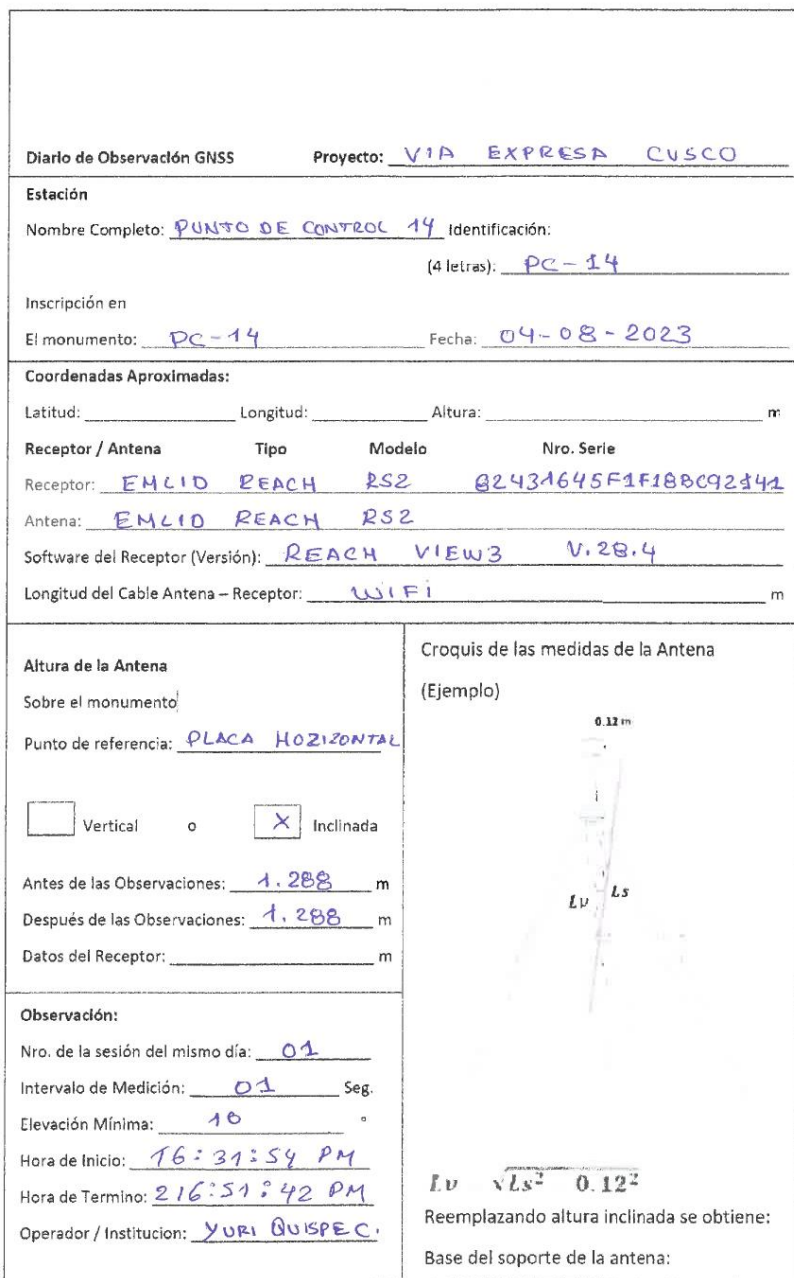 Diario de Observación GNSS Proyecto: VIA EXPRESA CUSCO
Estación
Nombre Completo: PUNTO DE CONTROL 14 Identificación:
(4 letras): PC-14
Inscripción en
El monumento: PC-14 Fecha: 04-08-2023
Coordenadas Aproximadas:
Latitud: Longitud: Altura: m
Receptor / Antena Tipo Modelo Nro. Serie
Receptor: EMLID REACH RS2
Antena: EMLID REACH RS2
Software del Receptor (Versión): REACH VIEW3 V.28.4
Longitud del Cable Antena – Receptor: WIFI m
Altura de la Antena
Sobre el monumento
Punto de referencia: PLACA HOZIZONTAL
Vertical o X Inclinada
Antes de las Observaciones: 1.288 m
Después de las Observaciones: 1.288 m
Datos del Receptor: m
Observación:
Nro. de la sesión del mismo día: 01
Intervalo de Medición: 01 Seg.
Elevación Mínima: 10 °
Hora de Inicio: 16:31:54 PM
Hora de Termino: 216:51:42 PM
Operador / Institucion: YURI QUISPE C.
Croquis de las medidas de la Antena
(Ejemplo)
0.12 m
Lν Ls
Lν √Ls² 0.12²
Reemplazando altura inclinada se obtiene:
Base del soporte de la antena: